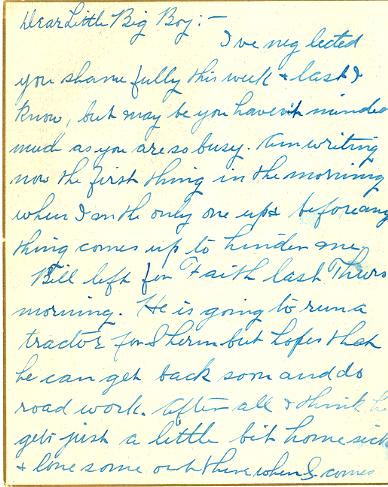 Dear Little Big Boy:-
I've neglected
you shamefully this week & last I
know, but may be you haven't minded
much as you are so busy. Am writing
now the first thing in the morning
when I am the only one up & before any
thing comes up to hinder me.
Bill left for Faith last Thurs
morning. He is going to run a
tractor for Sherm but hopes that
he can get back soon and do
road work. After all I think he
gets just a little bit home sick
& lonesome out there when S. comes